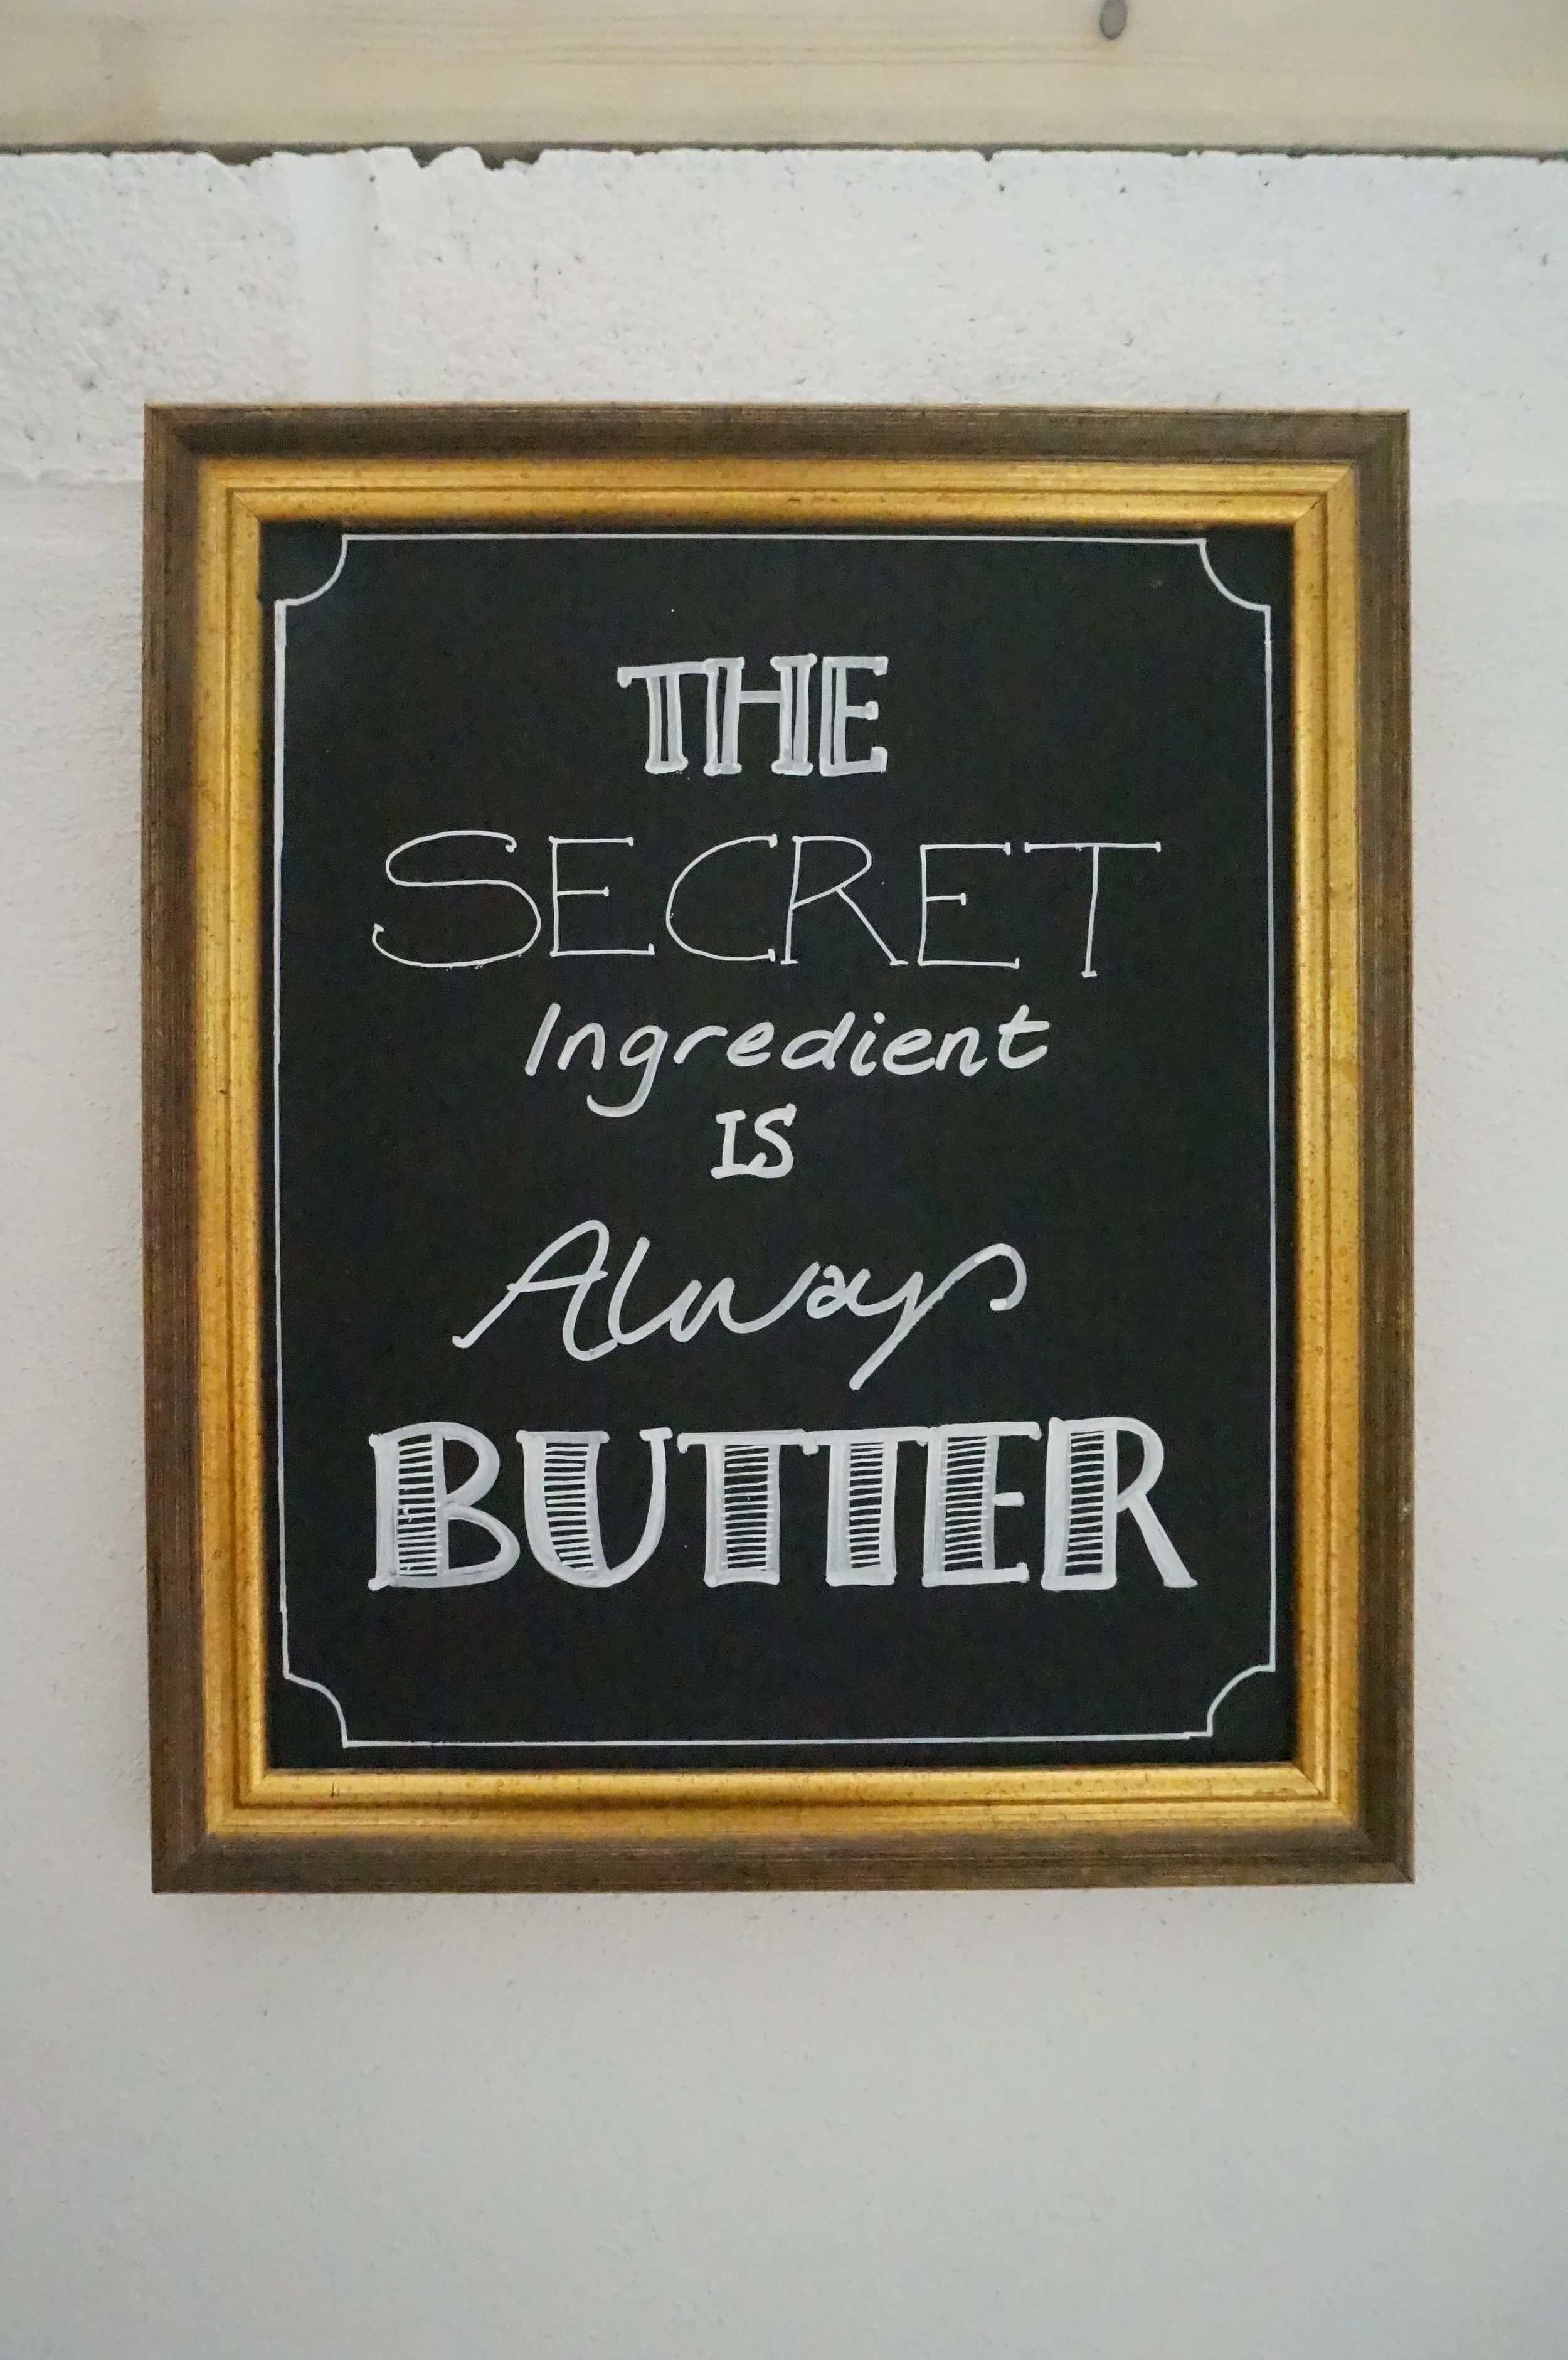 THE
SECRET
Ingredient
IS
Always
BUTTER